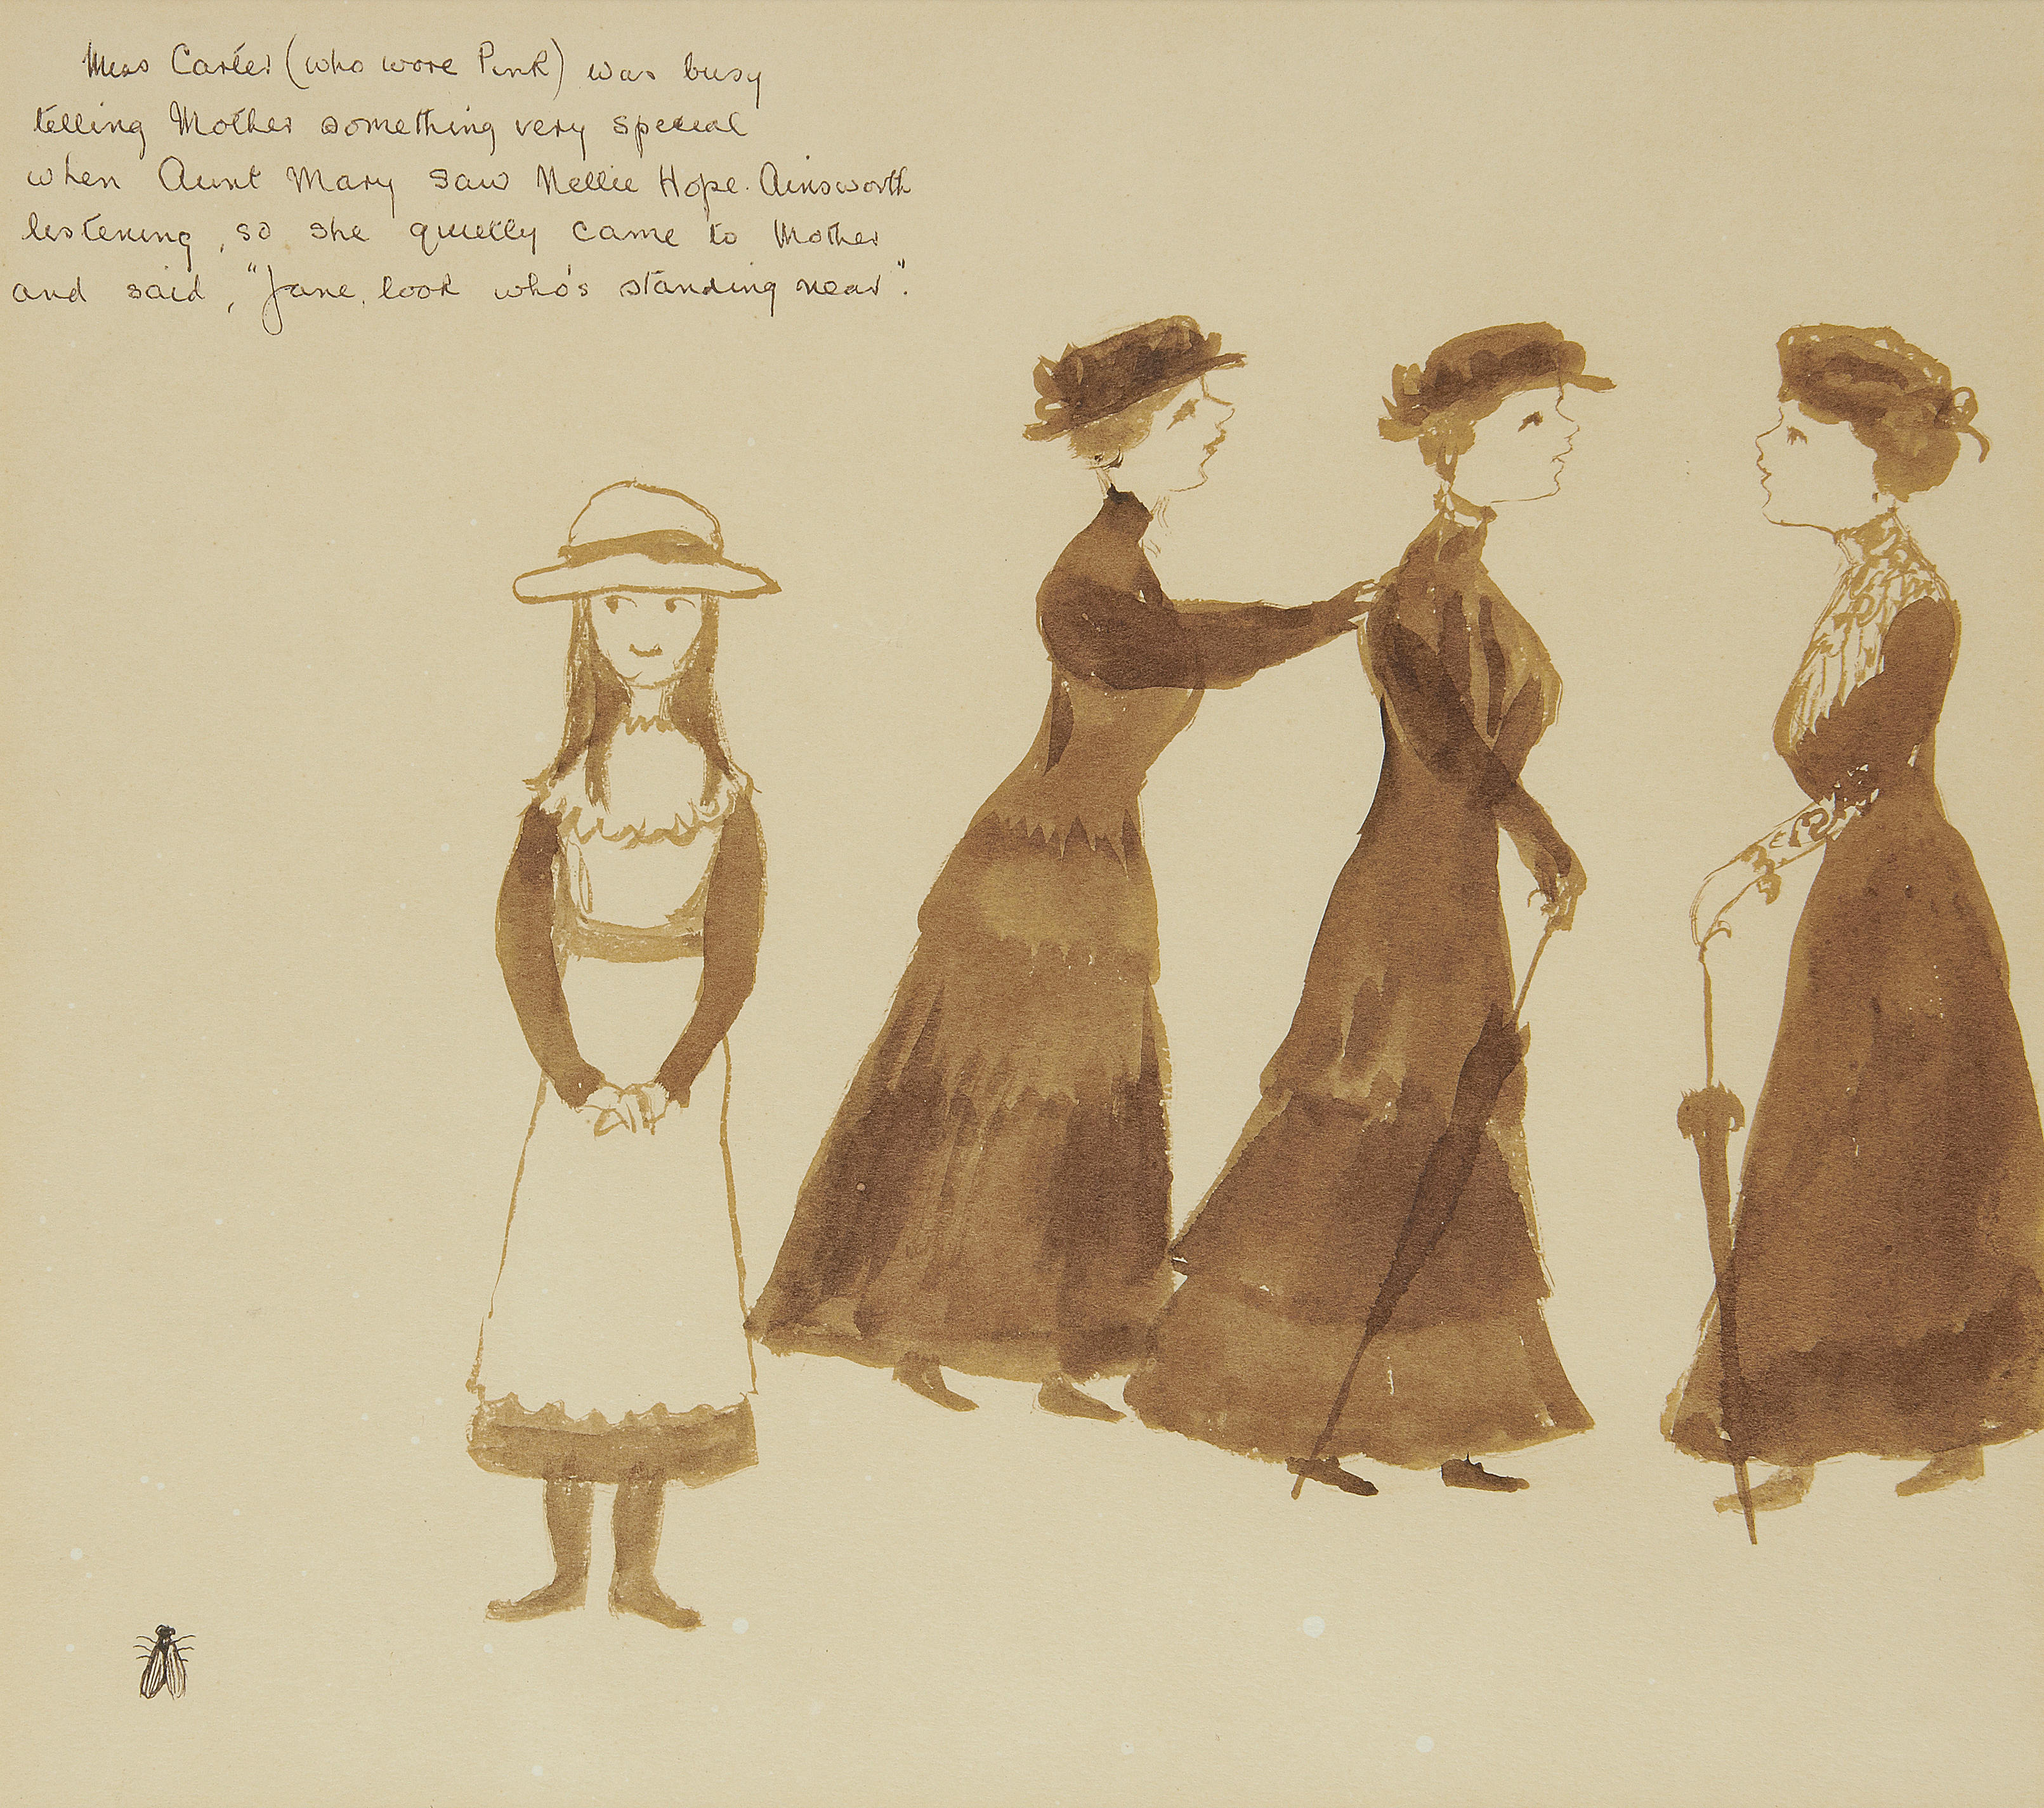 Miss Carter (who wore Pink) was busy
telling Mother something very special
when Aunt Mary saw Nellie Hope-Ainsworth
listening, so she quietly came to Mother
and said, "Jane, look who's standing near".